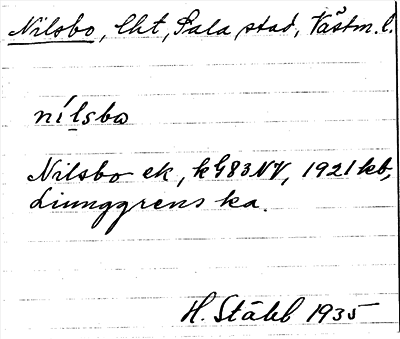 Nilsbo, lht, Sala stad, Västm. l.
nílsbω
Nilsbo ek, kG83NV, 1921 kb,
Ljunggrens ka.
H. Ståhl 1935